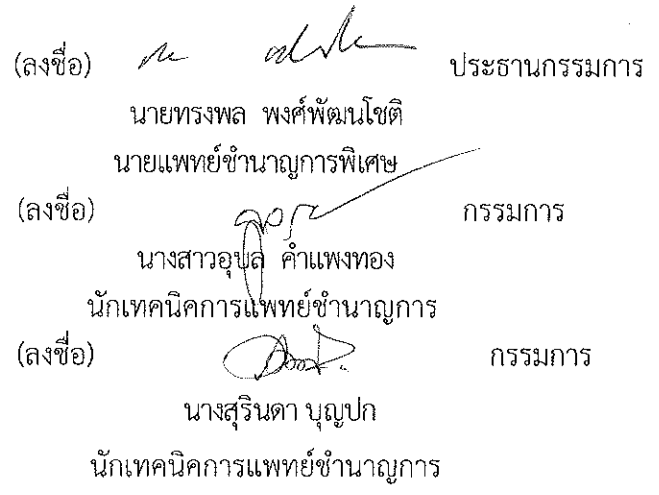 (ลงชื่อ) ประธานกรรมการ
นายทรงพล พงศ์พัฒนโชติ
นายแพทย์ชำนาญการพิเศษ
(ลงชื่อ) กรรมการ
นางสาวอุบล คำแพงทอง
นักเทคนิคการแพทย์ชำนาญการ
(ลงชื่อ) กรรมการ
นางสุรินดา บุญปก
นักเทคนิคการแพทย์ชำนาญการ